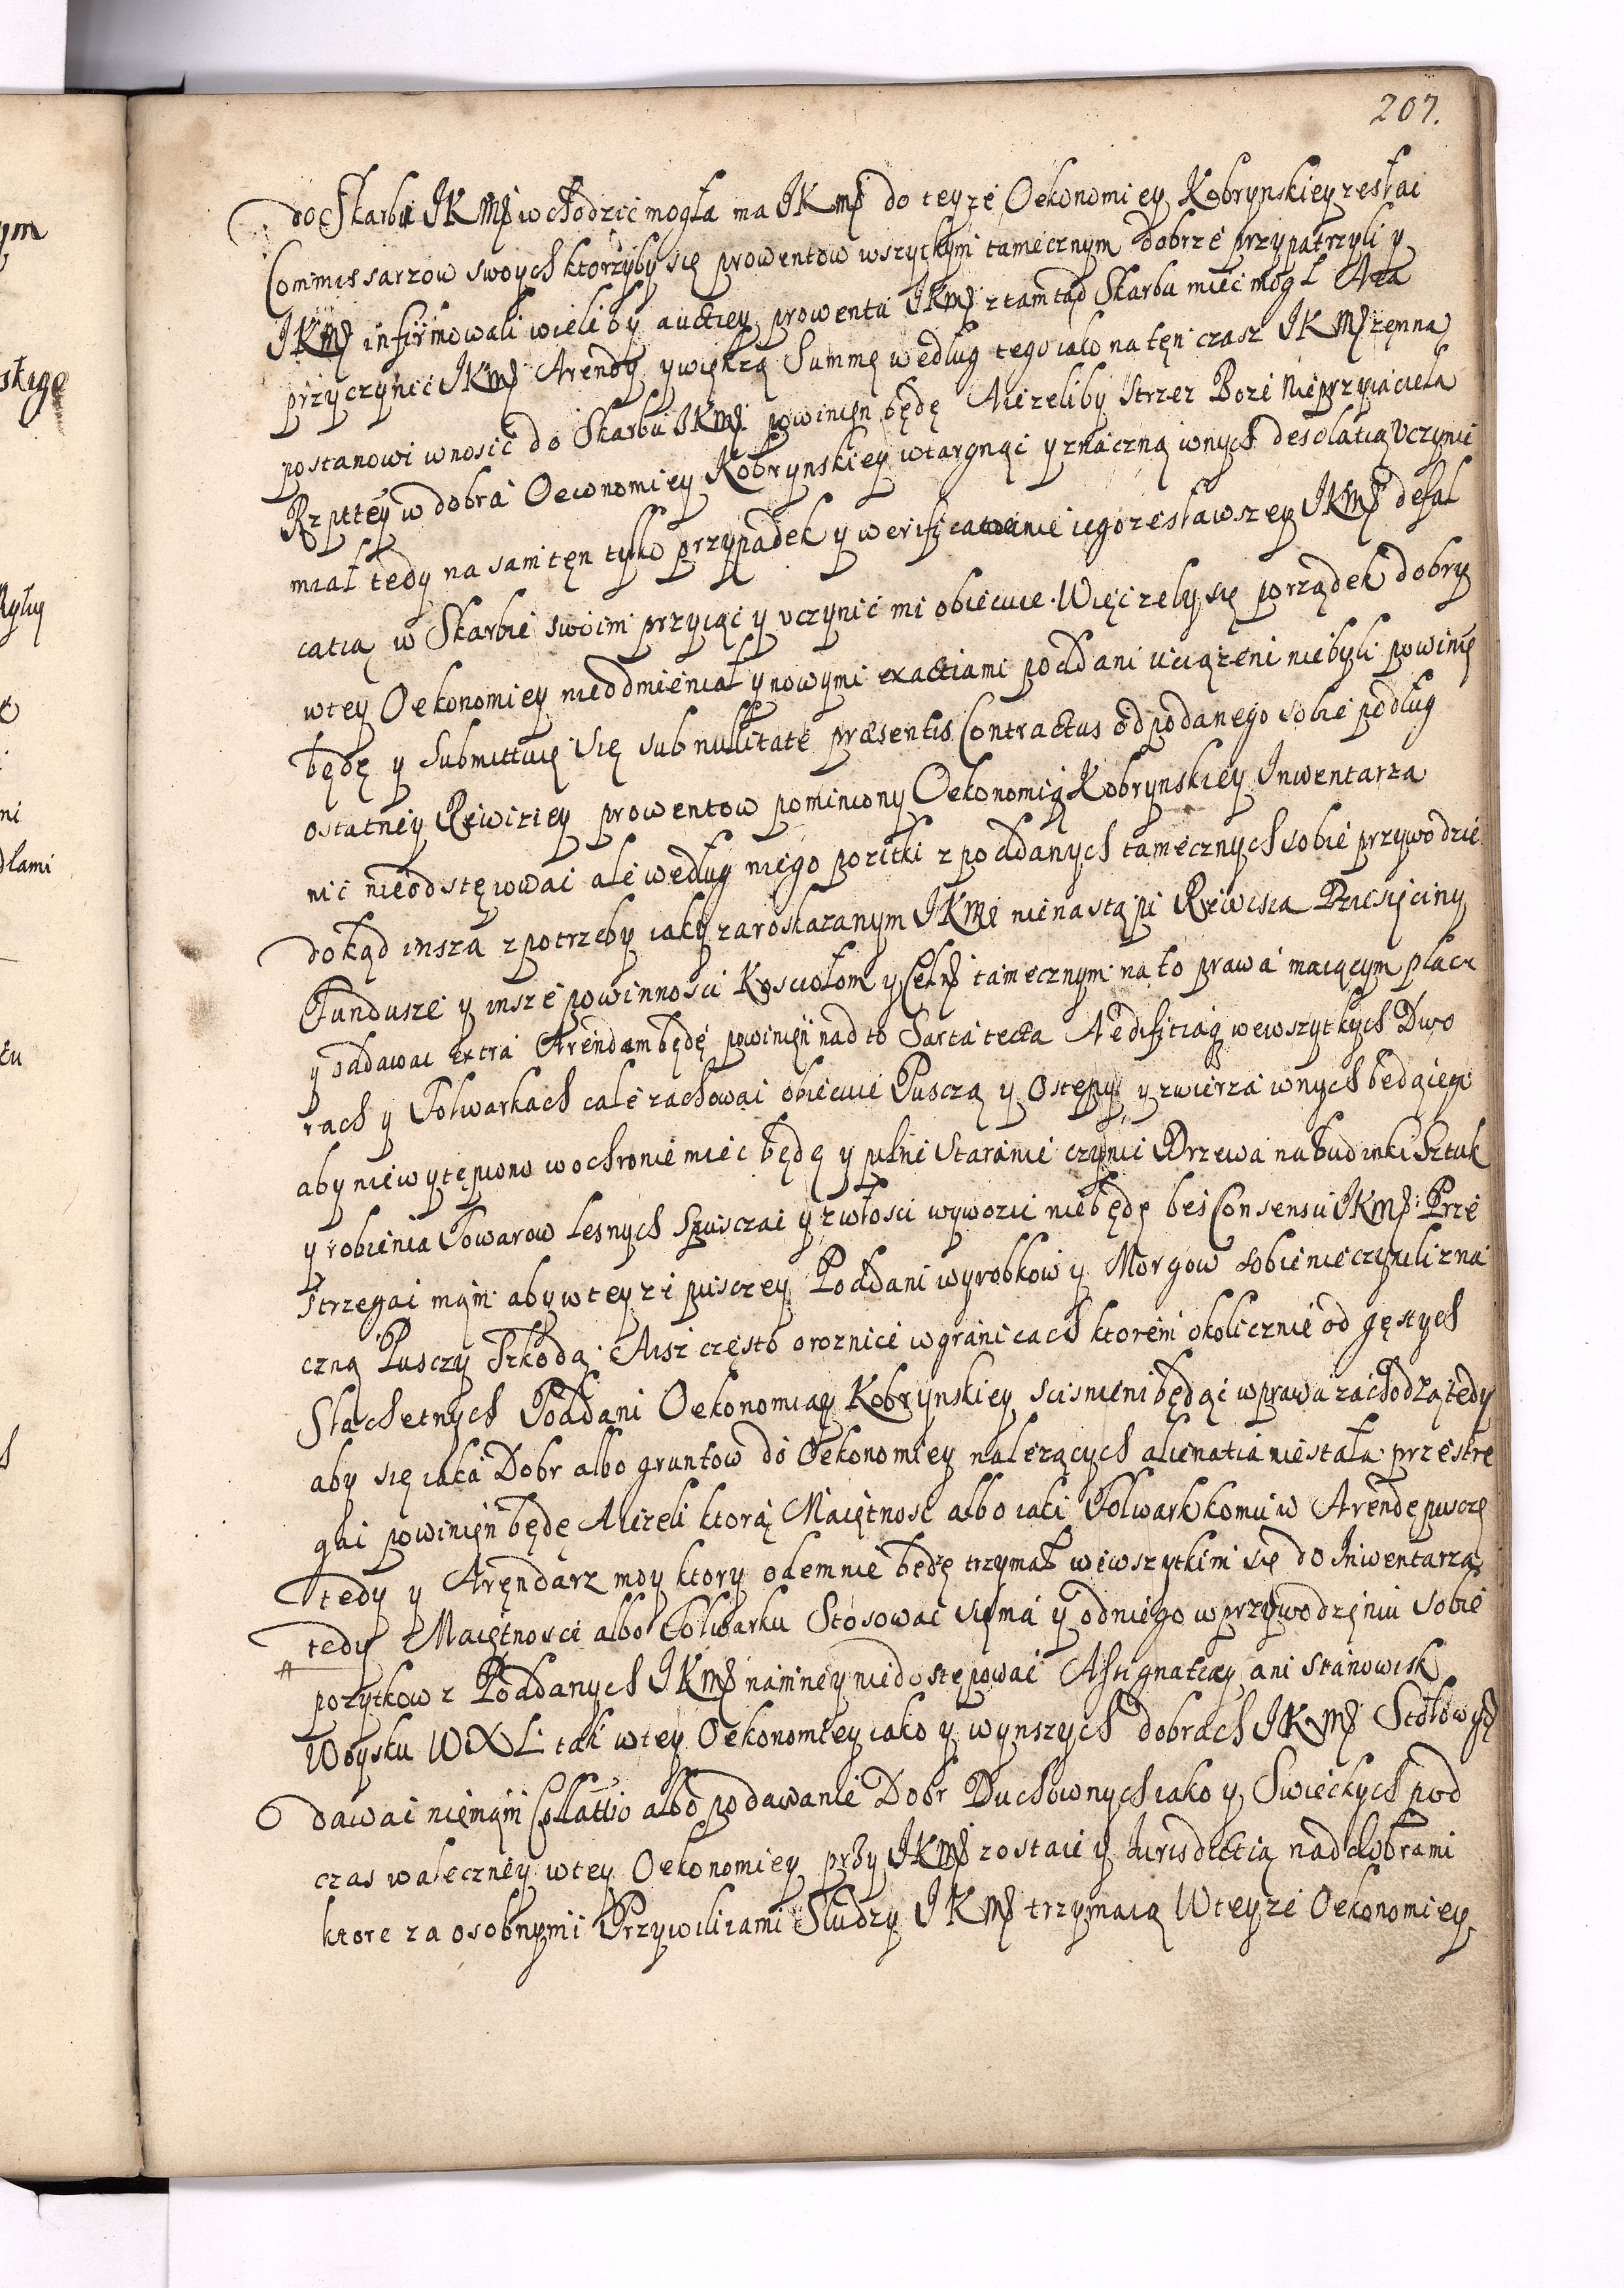 207.
do Skarbu JKMs wchodzić mogła ma JKms do teyże Oekonomiey Kobrynskiey zesłac
Commissarzow swoych ktorzyby się prowentow wszyckym tamecznym dobrze przypatrzyli y
JKMs informowali wieliby auctiey prowentu JKMs ztamtąd Skarbu mieć mogł A ta
przyczynić JKMs Arendy y większą Summę według tego iako na tęn czasz JKMs zemną
postanowi wnosić do Skarbu JKMs powinięn będę A ieżeliby Strzez Boże Nieprzyiaciela
Rzpttey w dobra Oeconomiey Kobrynskiey wtargnąć y znaczną w nych desolatią Uczynić
miał tedy na sam tęn tylko przypadek y werificatwanie iego zesławszey JKMs defal
catią w Skarbie swoim przyiąć y uczynić mi obiecuie. Więc żeby się porządek dobry
w tey Oekonomiey nieodmieniał y nowymi exactiami poddani uciążeni niebyli powinię
będę y Submittuię się sub nullitate præsentis Contractus od podanego sobie podług
ostatney Rewiziey prowentow pominiony Oekonomią Kobrynskiey Inwentarza
nic nieodstęwować ale według niego pożitki z poddanych tamecznych sobie przywodzie
dokąd insza z potrzeby iaky za roskazanym JKMs nienastąpi Rewisia Dziesięciny
Fundusze y insze powinności Kosciołom y tamecznym na to prawa maiącym płaca
y oddawać extra Arendam będę powinięn nad to Sarta tecta Aedifitią we wszytkych Dwo
rach y Folwarkach cale zachować obiecuie Puscza y Ostępy y zwierza w nych będącego
aby nie wytępiono w ochronie mieć będę y pilne Staranie czynic Drzewa na budinki Sztuk
y robienia Towarow Lesnych Spusczać y z włosci wywozić nie będę bes Consensu JKMs: Prze
strzegać mąm aby w teyże pusczey Poddani wyrobkow y Morgow sobie nieczynili zna
czną Pusczy Szkodą. A isz często o roznice w granicach ktoremi okolicznie od gęstych
Slachetnych Poddani Oekonomiey Kobrynskiey scisnieni będąc w prawa zachodzą tedy
aby się iaka Dobr albo gruntow do Oekonomiey należących alienatia niestała przestrze
gać powinięn będę A ieżeli ktorą Maiętnosc albo iaki Folwark komu w Arendę puscze
tedy y Aręndarz moy ktory odemnie będzę trzymał wewszytkim się do Inwentarza
tedy Maiętnosci albo Folwarku Stosować się ma y od niego w przywodzęniu sobie
pożytkow z Poddanych JKMs namniey niedostępować Assignatiey ani Stanowisk
Woysku WXL tak w tey Oekonomiey iako y w ynszych dobrach JKMs Stołowych
dawać niemąm Collatio albo podawanie Dobr Duchownych iako y Swieckych pod
czas waleczney w tey Oekonomiey przy JKMs zostaie y Jurisdictią nad dobrami
ktore za osobnymi Przywilieiami Słudzy JKMs trzymaią W teyże Oekonomiey